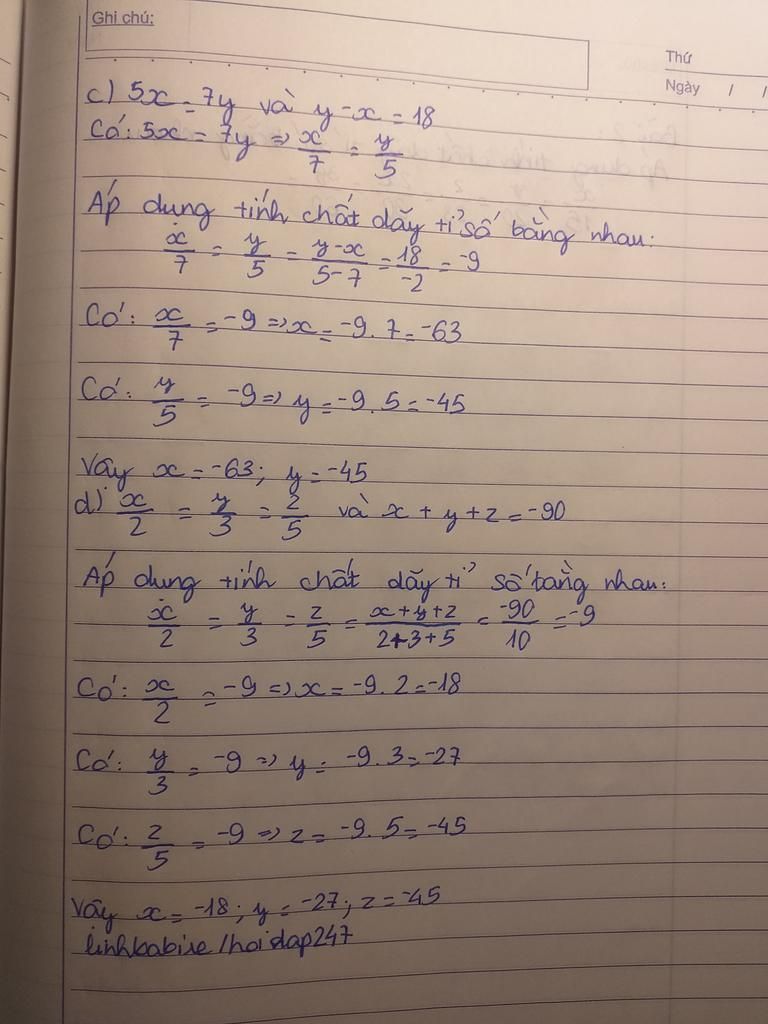 Ghi chú:
Thứ
Ngày / /
c) 5x = 7y và y-x = 18
Có: 5x = 7y => x/7 = y/5
Áp dụng tính chất dãy tỉ số bằng nhau:
x/7 = y/5 = y-x/5-7 = 18/-2 = -9
Có: x/7 = -9 => x = -9.7 = -63
Có: y/5 = -9 => y = -9.5 = -45
Vậy x = -63; y = -45
d) x/2 = y/3 = z/5 và x + y + z = -90
Áp dụng tính chất dãy tỉ số bằng nhau:
x/2 = y/3 = z/5 = x+y+z/2+3+5 = -90/10 = -9
Có: x/2 = -9 => x = -9.2 = -18
Có: y/3 = -9 => y = -9.3 = -27
Có: z/5 = -9 => z = -9.5 = -45
Vậy x = -18; y = -27; z = -45
linhbabie/hoidap247